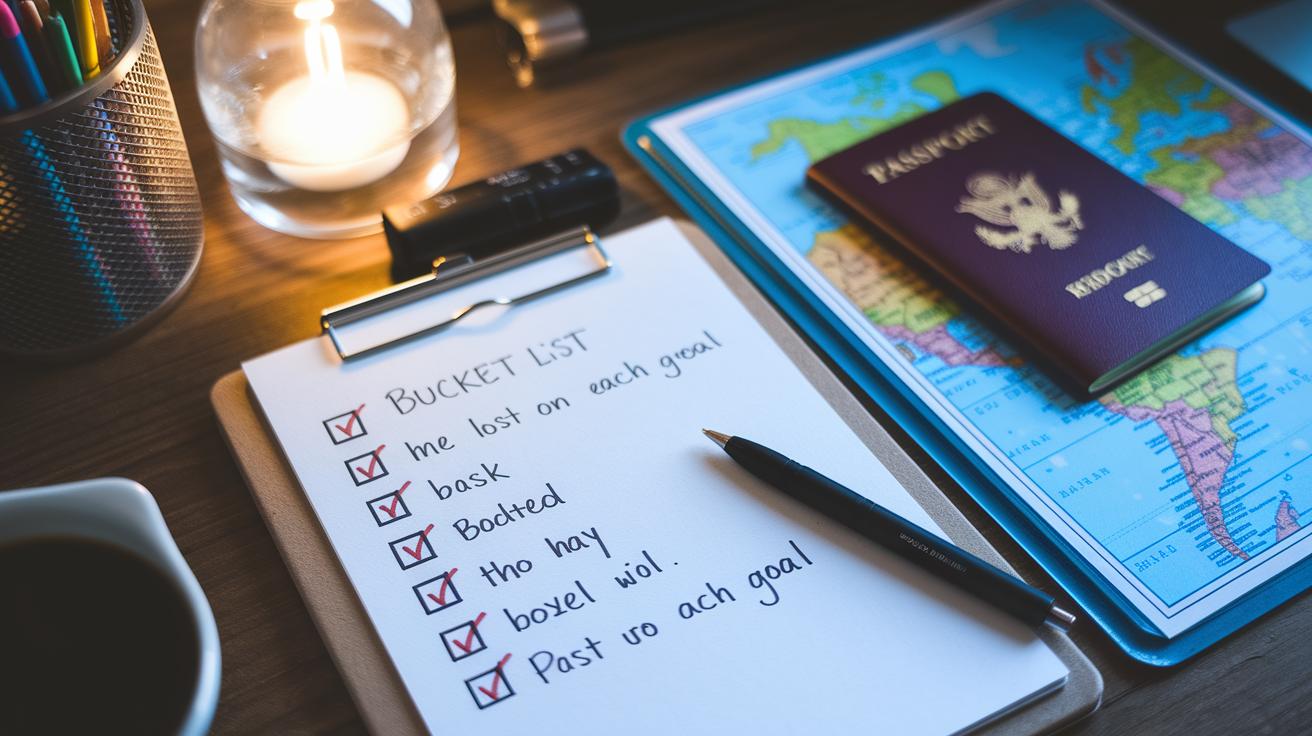 BUCKET LIST
hne lost on each groal
bask
Bodted
tho hay
boxel wol.
Past vo ach goal
PASSPORT